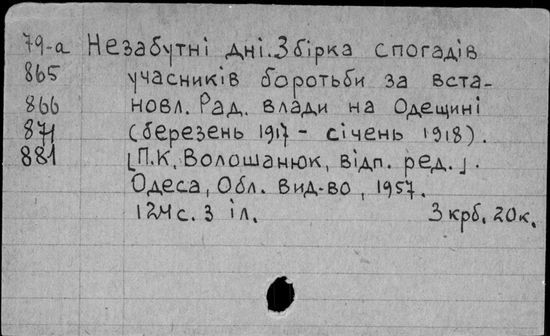 79-а Незабутні дні. Збірка спогадів
865 учасників боротьби за вста-
866 новл. Рад. влади на Одещині
871 (березень 1917 - січень 1918).
881 [П.К. Волошанюк, відп. ред.].
Одеса, Обл. вид-во, 1957.
124 с. з іл. 3 крб. 20к.